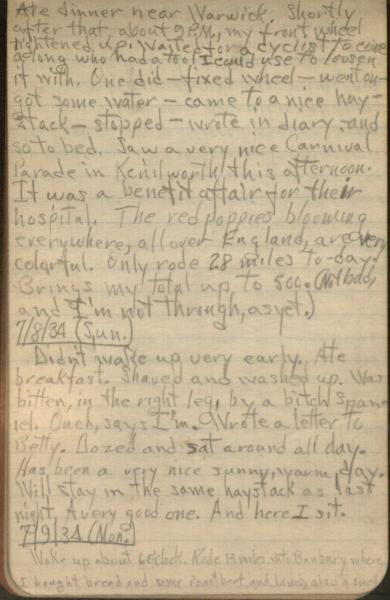 Ate dinner near Warwick. Shortly
after that, about 2 P.M., my front wheel
tightened up. Waited for a cyclist to come
along who had a tool I could use to loosen
it with. One did - fixed wheel - went on -
got some water - came to a nice hay-
stack - stopped - wrote in diary, and
so to bed. Saw a very nice Carnival
Parade in Kenilworth this afternoon.
It was a benefit affair for their
hospital. The red poppies blooming
everywhere, all over England, are very
colorful. Only rode 28 miles to-day.
Brings my total up to 500. (Not bad,
and I'm not through, as yet.)
7/8/34 (Sun.)
Didn't wake up very early. Ate
breakfast. Shaved and washed up. Was
bitten, in the right leg, by a bitch span-
iel. Ouch, says I'm. Wrote a letter to
Betty. Dozed and sat around all day.
Has been a very nice sunny, warm, day.
Will stay in the same haystack as last
night. A very good one. And here I sit.
7/9/34 (Mon.)
Woke up about 6 o'clock. Rode miles into Banbury where
I bought bread and some roast beef and lamb, also a